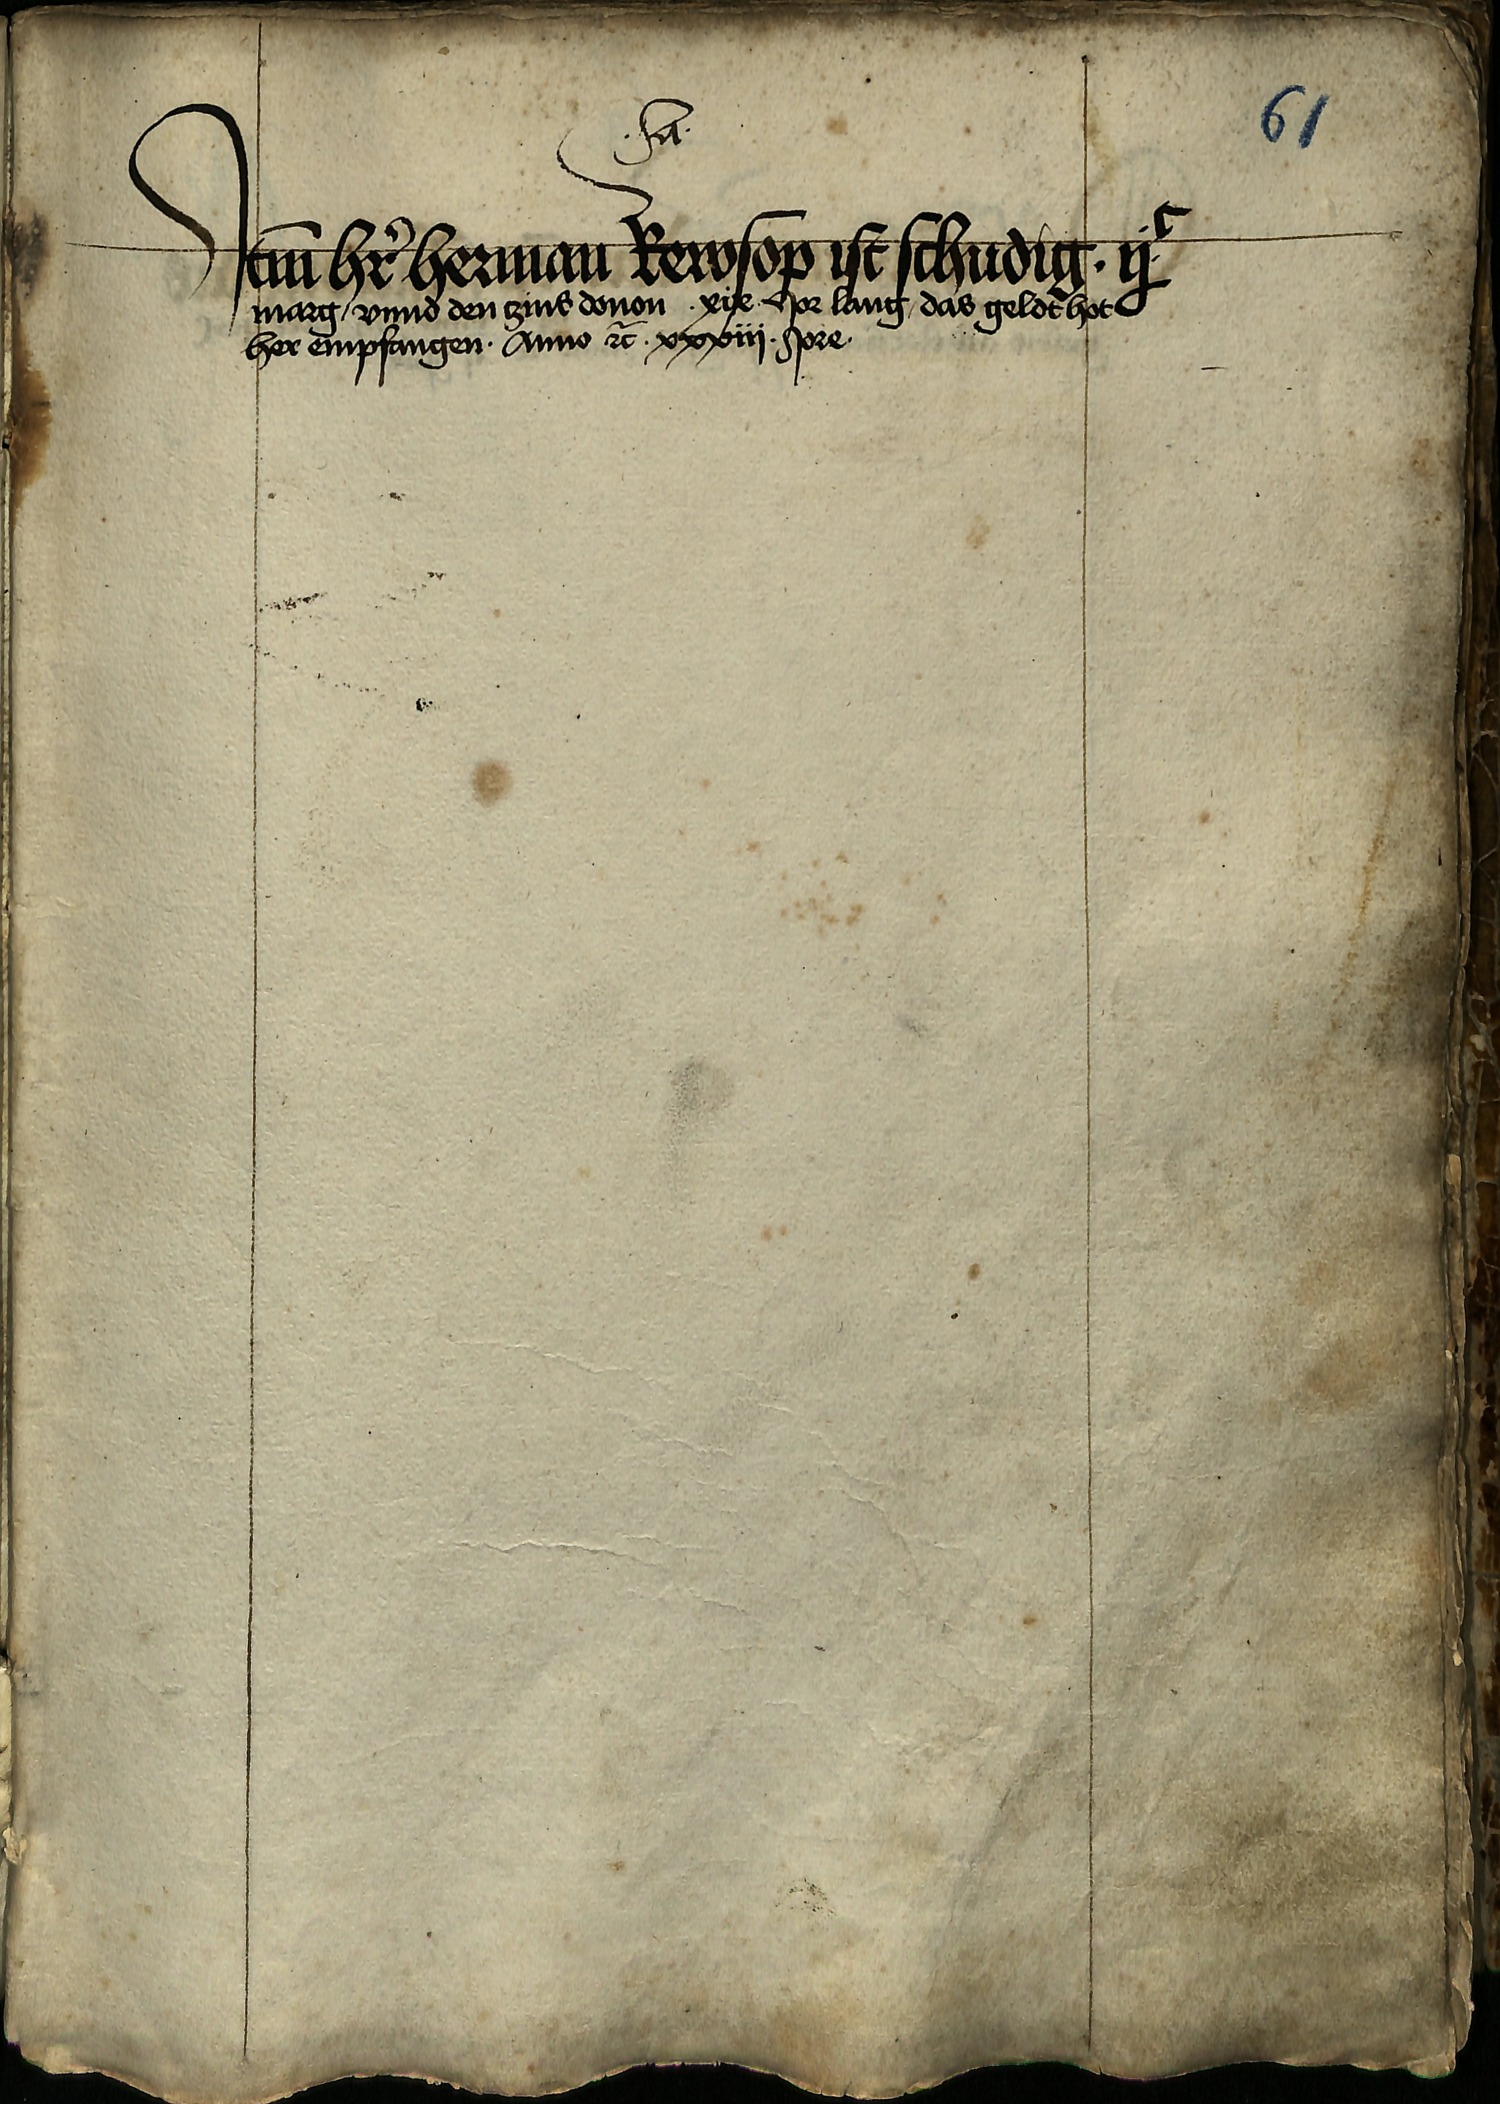 61
Jtem hr̄ herman Rewsop ist schudig · ij c
marg / vnnd den zins douon · xije Jor lang / das geldt hot
her empfangen · Anno rc̄ · xxxviii · Jore ·